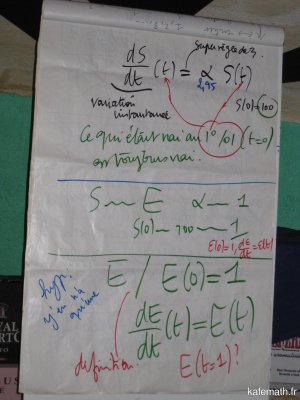 super règle de 3.
dS/dt (t) = α S(t)
2,95
variation instantanée
S(0)=100
Ce qui était vrai au 1° (t=0)
est toujours vrai.
S ~ E α — 1
S(0) — 100 — 1
E(0)=1, dE/dt = E(t)
E / E(0)=1
hyp. y en a qu'une
dE/dt (t) = E(t)
définition. E(t=1)?
kafemath.fr